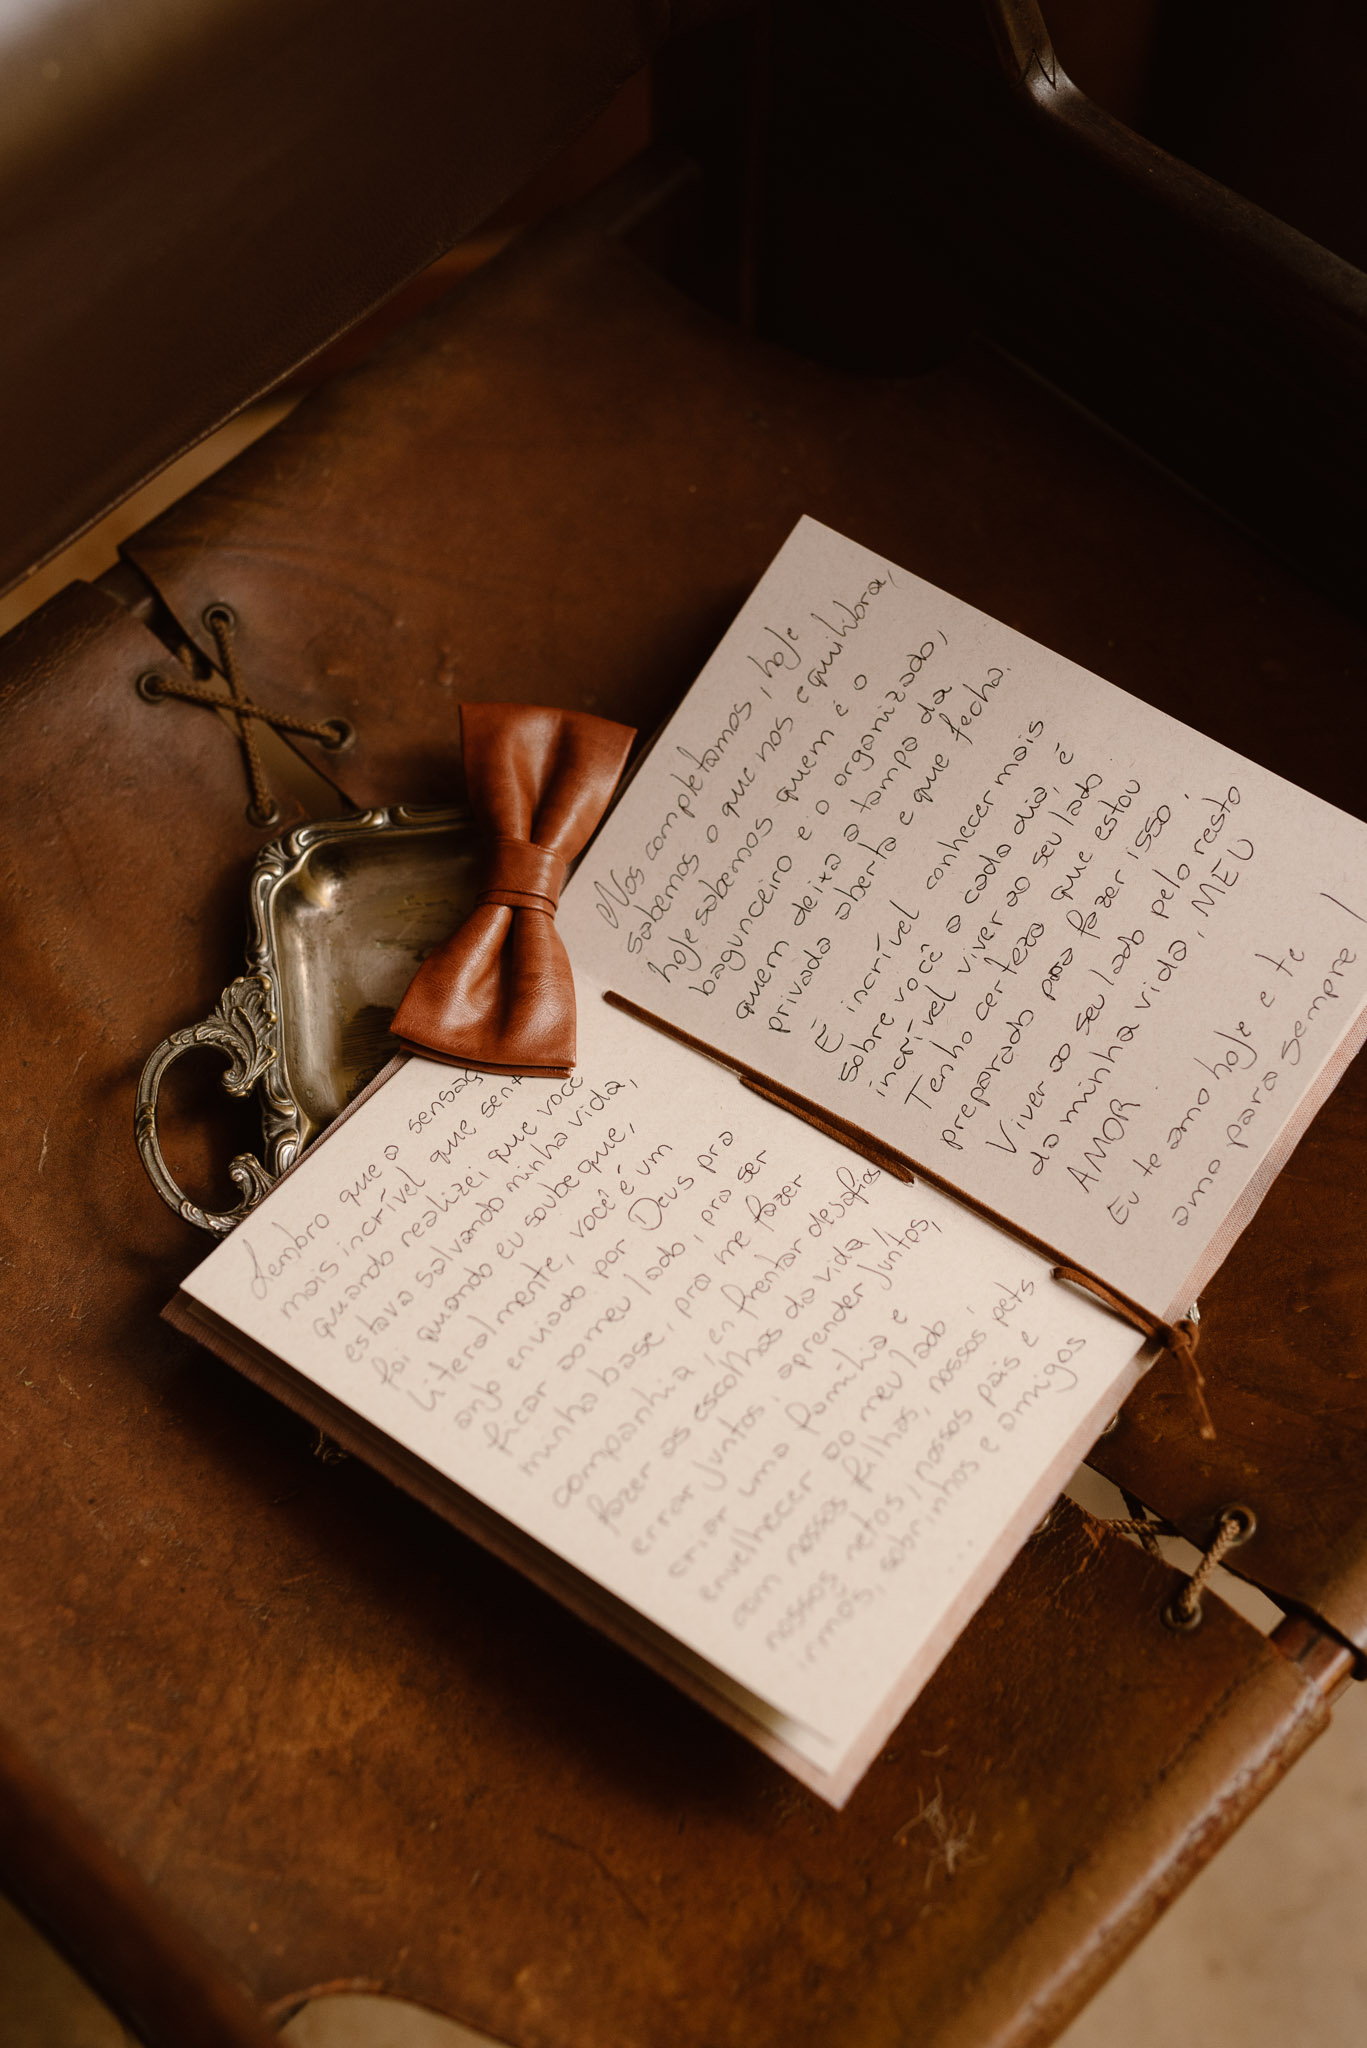 Lembro que a sensaç
mais incrível que sent
quando realizei que você
estava salvando minha vida,
foi quando eu soube que,
Literalmente, você é um
anjo enviado por Deus pra
ficar ao meu lado, pra ser
minha base, pra me fazer
companhia, enfrentar desafios
fazer as escolhas da vida,
errar juntos, aprender juntos,
criar uma família e
envelhecer ao meu lado
com nossos filhos, nossos pets
nossos netos, nossos pais e
irmãos, sobrinhos e amigos
...
Nos completamos, hoje
sabemos o que nos equilibra,
hoje sabemos quem é o
bagunceiro e o organizado,
quem deixa a tampa da
privada aberta e que fecha.
É incrível conhecer mais
sobre você a cada dia, é
incrível viver ao seu lado
Tenho certeza que estou
preparado para fazer isso.
Viver ao seu lado pelo resto
da minha vida, MEU
AMOR
Eu te amo hoje e te
amo para sempre!